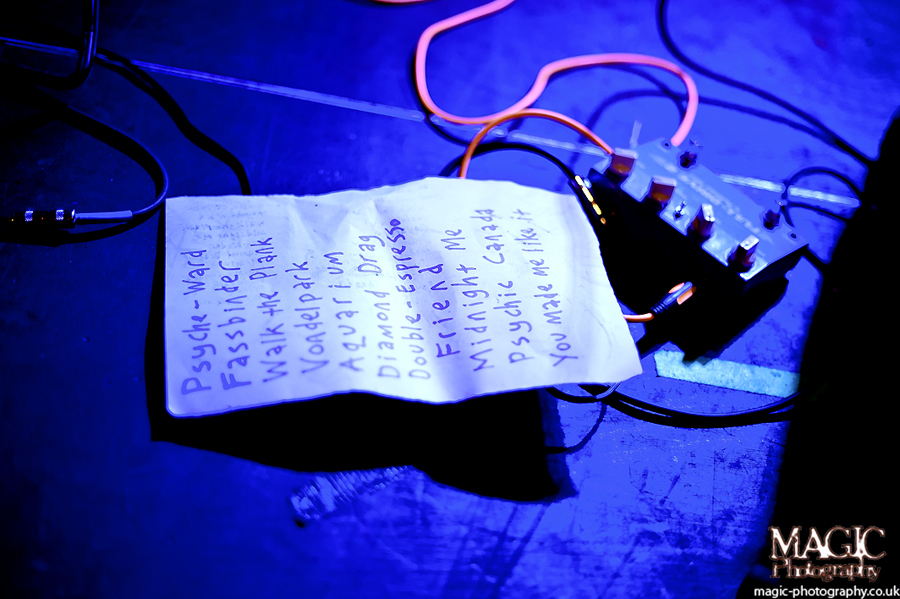 Psyche-Ward
Fassbinder
Walk the Plank
Vondelpark
Aquarium
Diamond Drag
Double-Espresso
Friend Me
Midnight Me
Psychic Canada
You made me like it
MAGIC
Photography
magic-photography.co.uk